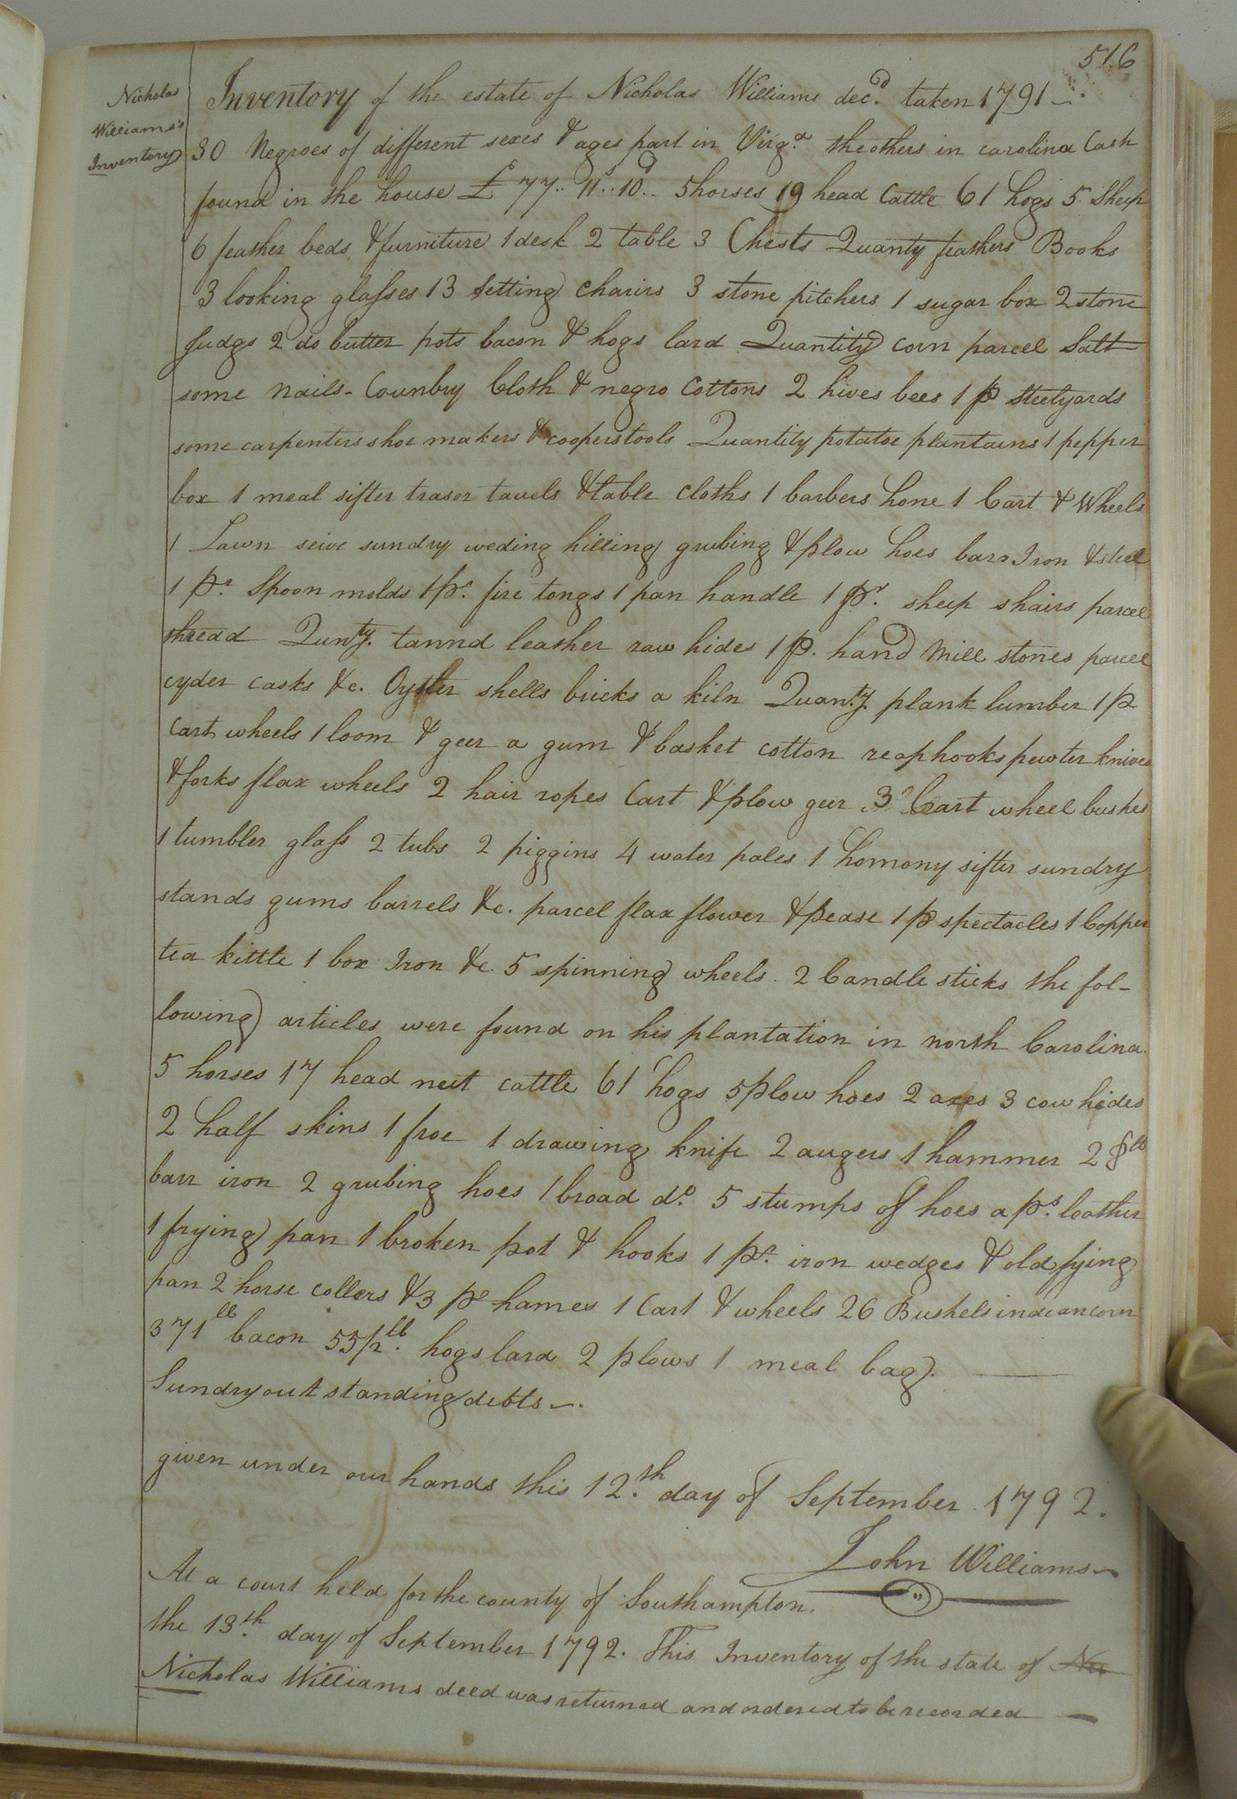 516
Nicholas
Williams's
Inventory
Inventory of the estate of Nicholas Williams decd. taken 1791
30 Negroes of different sexes & ages part in Virga. the others in carolina Cash
found in the house £ 77.. 11s.. 10d.. 5 horses 19 head Cattle 61 hogs 5 Sheep
6 feather beds & furniture 1 desk 2 table 3 Chests Quanty feathers Books
3 looking glasses 13 setting chairs 3 stone pitchers 1 sugar box 2 stone
Judgs 2 do butter pots bacon & hogs lard Quantity corn parcel Salt
some nails - Counbry Cloth & negro Cottons 2 hives bees 1 p steelyards
some carpenters shoe makers & coopers tools Quantity potatoe plantains 1 pepper
box 1 meal sifter trasor tauels & table cloths 1 barbers hone 1 Cart & Wheels
1 Lawn seive sundry weding hilling grubing & plow hoes barr Iron & steel
1 pr. Spoon molds 1 pr. fire tongs 1 pan handle 1 pr. sheep shairs parcel
thread Quanty. tannd leather raw hides 1 p. hand Mill stones parcel
cyder casks &c. Oyster shells bricks a kiln Quanty. plank lumber 1 p
Cart wheels 1 loom & geer a gum & basket cotton reap hooks pewter knives
& forks flax wheels 2 hair ropes Cart & plow geer 3 Cart wheel bushes
1 tumbler glass 2 tubs 2 piggins 4 water pales 1 homony sifter sundry
stands gums barrels &c. parcel flax flower & pease 1 p spectacles 1 Copper
tea kittle 1 box Iron &c 5 spinning wheels. 2 Candle sticks the fol-
lowing articles were found on his plantation in north Carolina.
5 horses 17 head neet cattle 61 hogs 5 plow hoes 2 axes 3 cow hides
2 half skins 1 froe 1 drawing knife 2 augers 1 hammer 28 lb
barr iron 2 grubing hoes 1 broad do. 5 stumps of hoes a ps. leather
1 frying pan 1 broken pot & hooks 1 pr. iron wedges & old frying
pan 2 horse collers & 3 pr hames 1 Cart & wheels 26 Bushels indean corn
371 lb bacon 55 1/2 lb. hogs lard 2 plows 1 meal bag.
Sundry out standing debts
given under our hands this 12.th day of September 1792.
John Williams
At a court held for the county of Southampton.
the 13.th day of September 1792. This Inventory of the state of Nic
Nicholas Williams decd was returned and ordered to be recorded